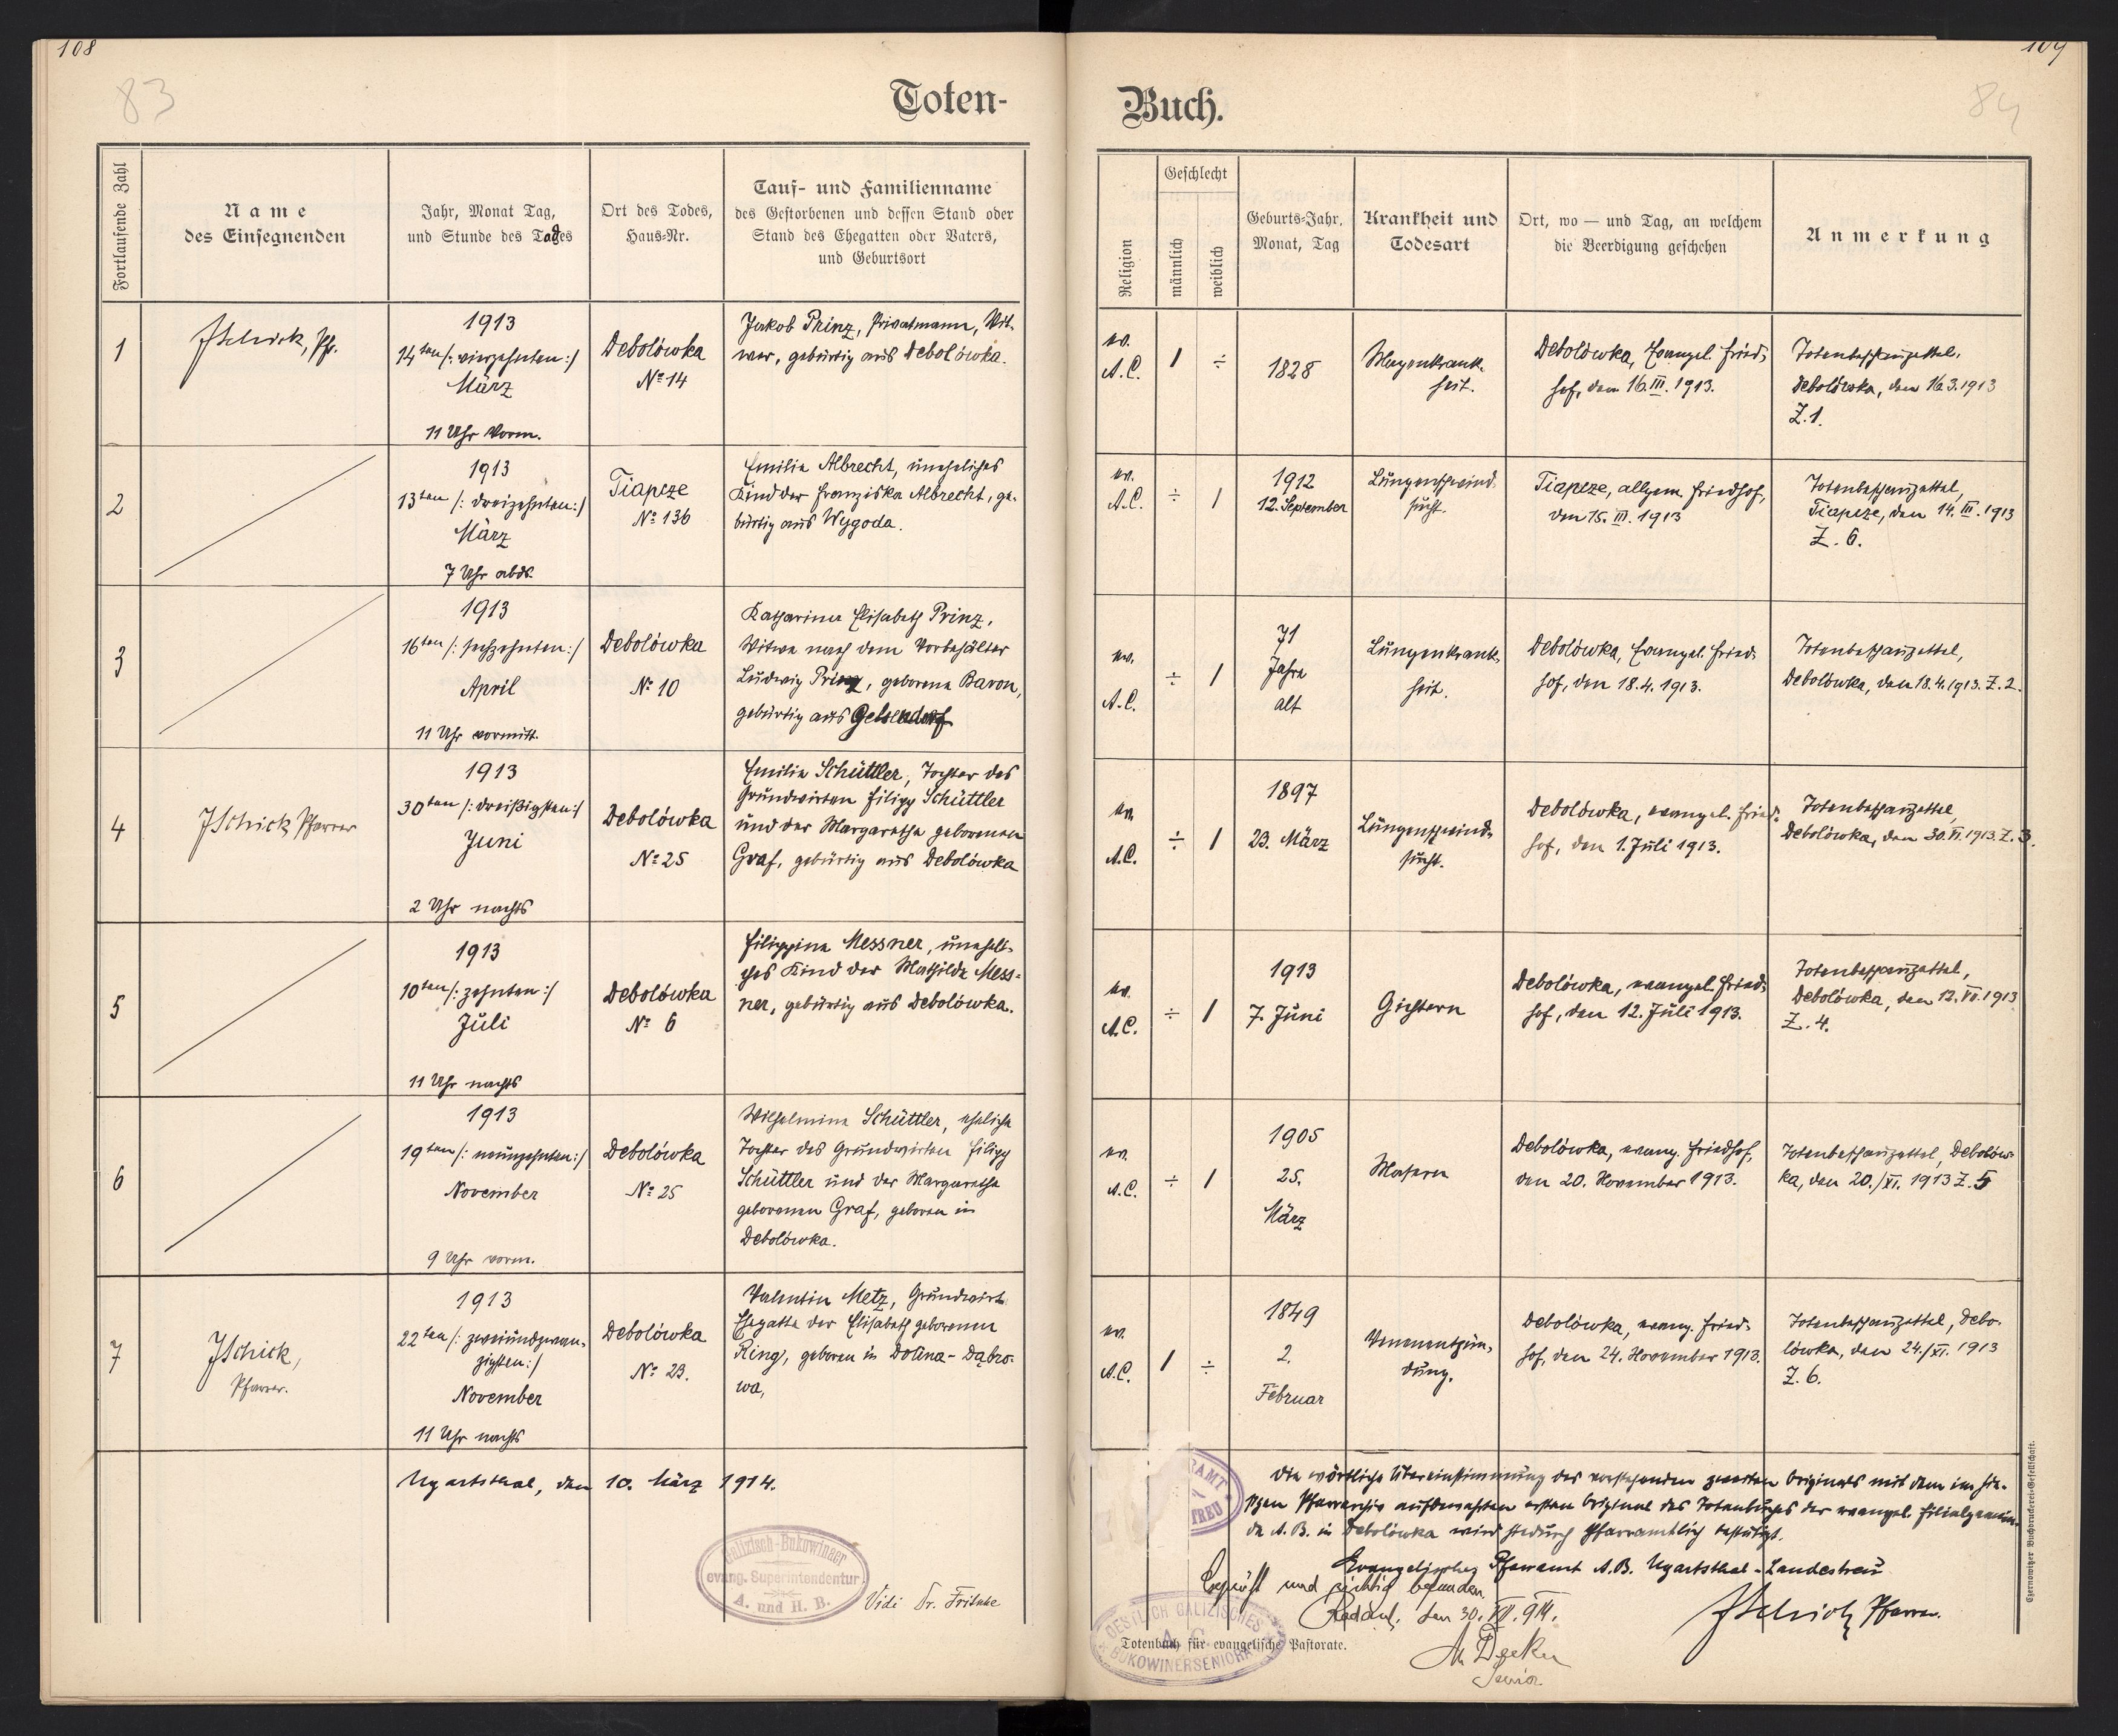 108
83
Toten-
Fortlaufende Zahl
Name
des Einsegnenden
Jahr, Monat Tag,
und Stunde des Todes
Ort des Todes,
Haus-Nr.
Tauf- und Familienname
des Gestorbenen und dessen Stand oder
Stand des Ehegatten oder Vaters,
und Geburtsort
1
JSchick, Pfr.
1913
14ten /: vierzehnten :/
März
11 Uhr Vorm.
Debolówka
No 14
Jakob Prinz, Privatmann, Wit-
wer, gebürtig aus Debolówka.
2
1913
13ten /: dreizehnten :/
März
7 Uhr abds.
Tiapcze
No 136
Emilie Albrecht, uneheliches
Kind der Franziska Albrecht, ge-
bürtig aus Wygoda.
3
1913
16ten /: sechzehnten :/
April
11 Uhr vormitt.
Debolówka
No 10
Katharina Elisabeth Prinz,
Witwe nach dem Vorbehälter
Ludwig Prinz, geborene Baron,
gebürtig aus Gelsendorf
4
JSchick Pfarrer
1913
30ten /: dreißigsten :/
Juni
2 Uhr nachts
Debolówka
No 25
Emilie Schüttler, Tochter des
Grundwirten Filipp Schüttler
und der Margaretha geborenen
Graf, gebürtig aus Debolówka
5
1913
10ten /: zehnten :/
Juli
11 Uhr nachts
Debolówka
No 6
Filippine Messner, uneheli-
ches Kind der Mathilde Mess-
ner, gebürtig aus Debolówka.
6
1913
19ten /: neunzehnten :/
November
9 Uhr vorm.
Debolówka
No 25
Wilhelmine Schüttler, eheliche
Tochter des Grundwirten Filipp
Schüttler und der Margaretha
geborenen Graf, geboren in
Debolówka.
7
JSchick,
Pfarrer.
1913
22ten /: zweiundzwan-
zigsten :/
November
11 Uhr nachts
Debolówka
No 23.
Valentin Metz, Grundwirt
Ehegatte der Elisabeth geborenen
Ring, geboren in Dolina-Dąbro-
wa,
Ugartsthal, den 10. März 1914.
Galizisch-Bukowinaer
evang. Superintendentur
A. und H. B.
Vidi Dr. Fritsche
109
84
Buch.
Religion
Geschlecht
männlich
weiblich
Geburts-Jahr,
Monat, Tag
Krankheit und
Todesart
Ort, wo — und Tag, an welchem
die Beerdigung geschehen
Anmerkung
ev.
A.C.
1
÷
1828
Magenkrank-
heit.
Debolówka, Evangel. Fried-
hof, den 16. III. 1913.
Totenbeschauzettel,
Debolówka, den 16.3.1913
Z. 1.
ev.
A.C.
÷
1
1912
12. September
Lungenschwind-
sucht.
Tiapcze, allgem. Friedhof,
den 15. III. 1913
Totenbeschauzettel,
Tiapcze, den 14. III. 1913
Z. 6.
ev.
A.C.
÷
1
71
Jahre
alt
Lungenkrank-
heit.
Debolówka, Evangel. Fried-
hof, den 18.4.1913.
Totenbeschauzettel,
Debolówka, den 18.4.1913. Z. 2.
ev.
A.C.
÷
1
1897
23. März
Lungenschwind-
sucht.
Debolówka, evangel. Fried-
hof, den 1. Juli 1913.
Totenbeschauzettel,
Debolówka, den 30. VI. 1913. Z. 3.
ev.
A.C.
÷
1
1913
7. Juni
Gichtern
Debolówka, evangel. Fried-
hof, den 12. Juli 1913.
Totenbeschauzettel,
Debolówka, den 12. VII. 1913
Z. 4.
ev.
A.C.
÷
1
1905
25.
März
Masern
Debolówka, evang. Friedhof,
den 20. November 1913.
Totenbeschauzettel, Debolów-
ka, den 20./XI. 1913 Z. 5
ev.
A.C.
1
÷
1849
2.
Februar
Venenentzün-
dung.
Debolówka, evang. Fried-
hof, den 24. November 1913.
Totenbeschauzettel, Debo-
lówka, den 24./XI. 1913
Z. 6.
RAMT
TREU
Die wörtliche Übereinstimmung des vorstehenden zweiten Originals mit dem im hie-
sigen Pfarrarchiv aufbewahrten ersten Original des Totenbuches der evangel. Filialgemein-
de A. B. in Debolówka wird hiedurch pfarramtlich bestätigt.
Evangelisches Pfarramt A. B. Ugartsthal-Landestreu
Geprüft und richtig befunden
Radautz, den 30. VII. 914.
JSchick Pfarrer.
OESTLICH GALIZISCHES
A. C.
BUKOWINERSENIORAT
Totenbuch für evangelische Pastorate.
M Decker
Senior
Czernowitzer Buchdruckerei-Gesellschaft.